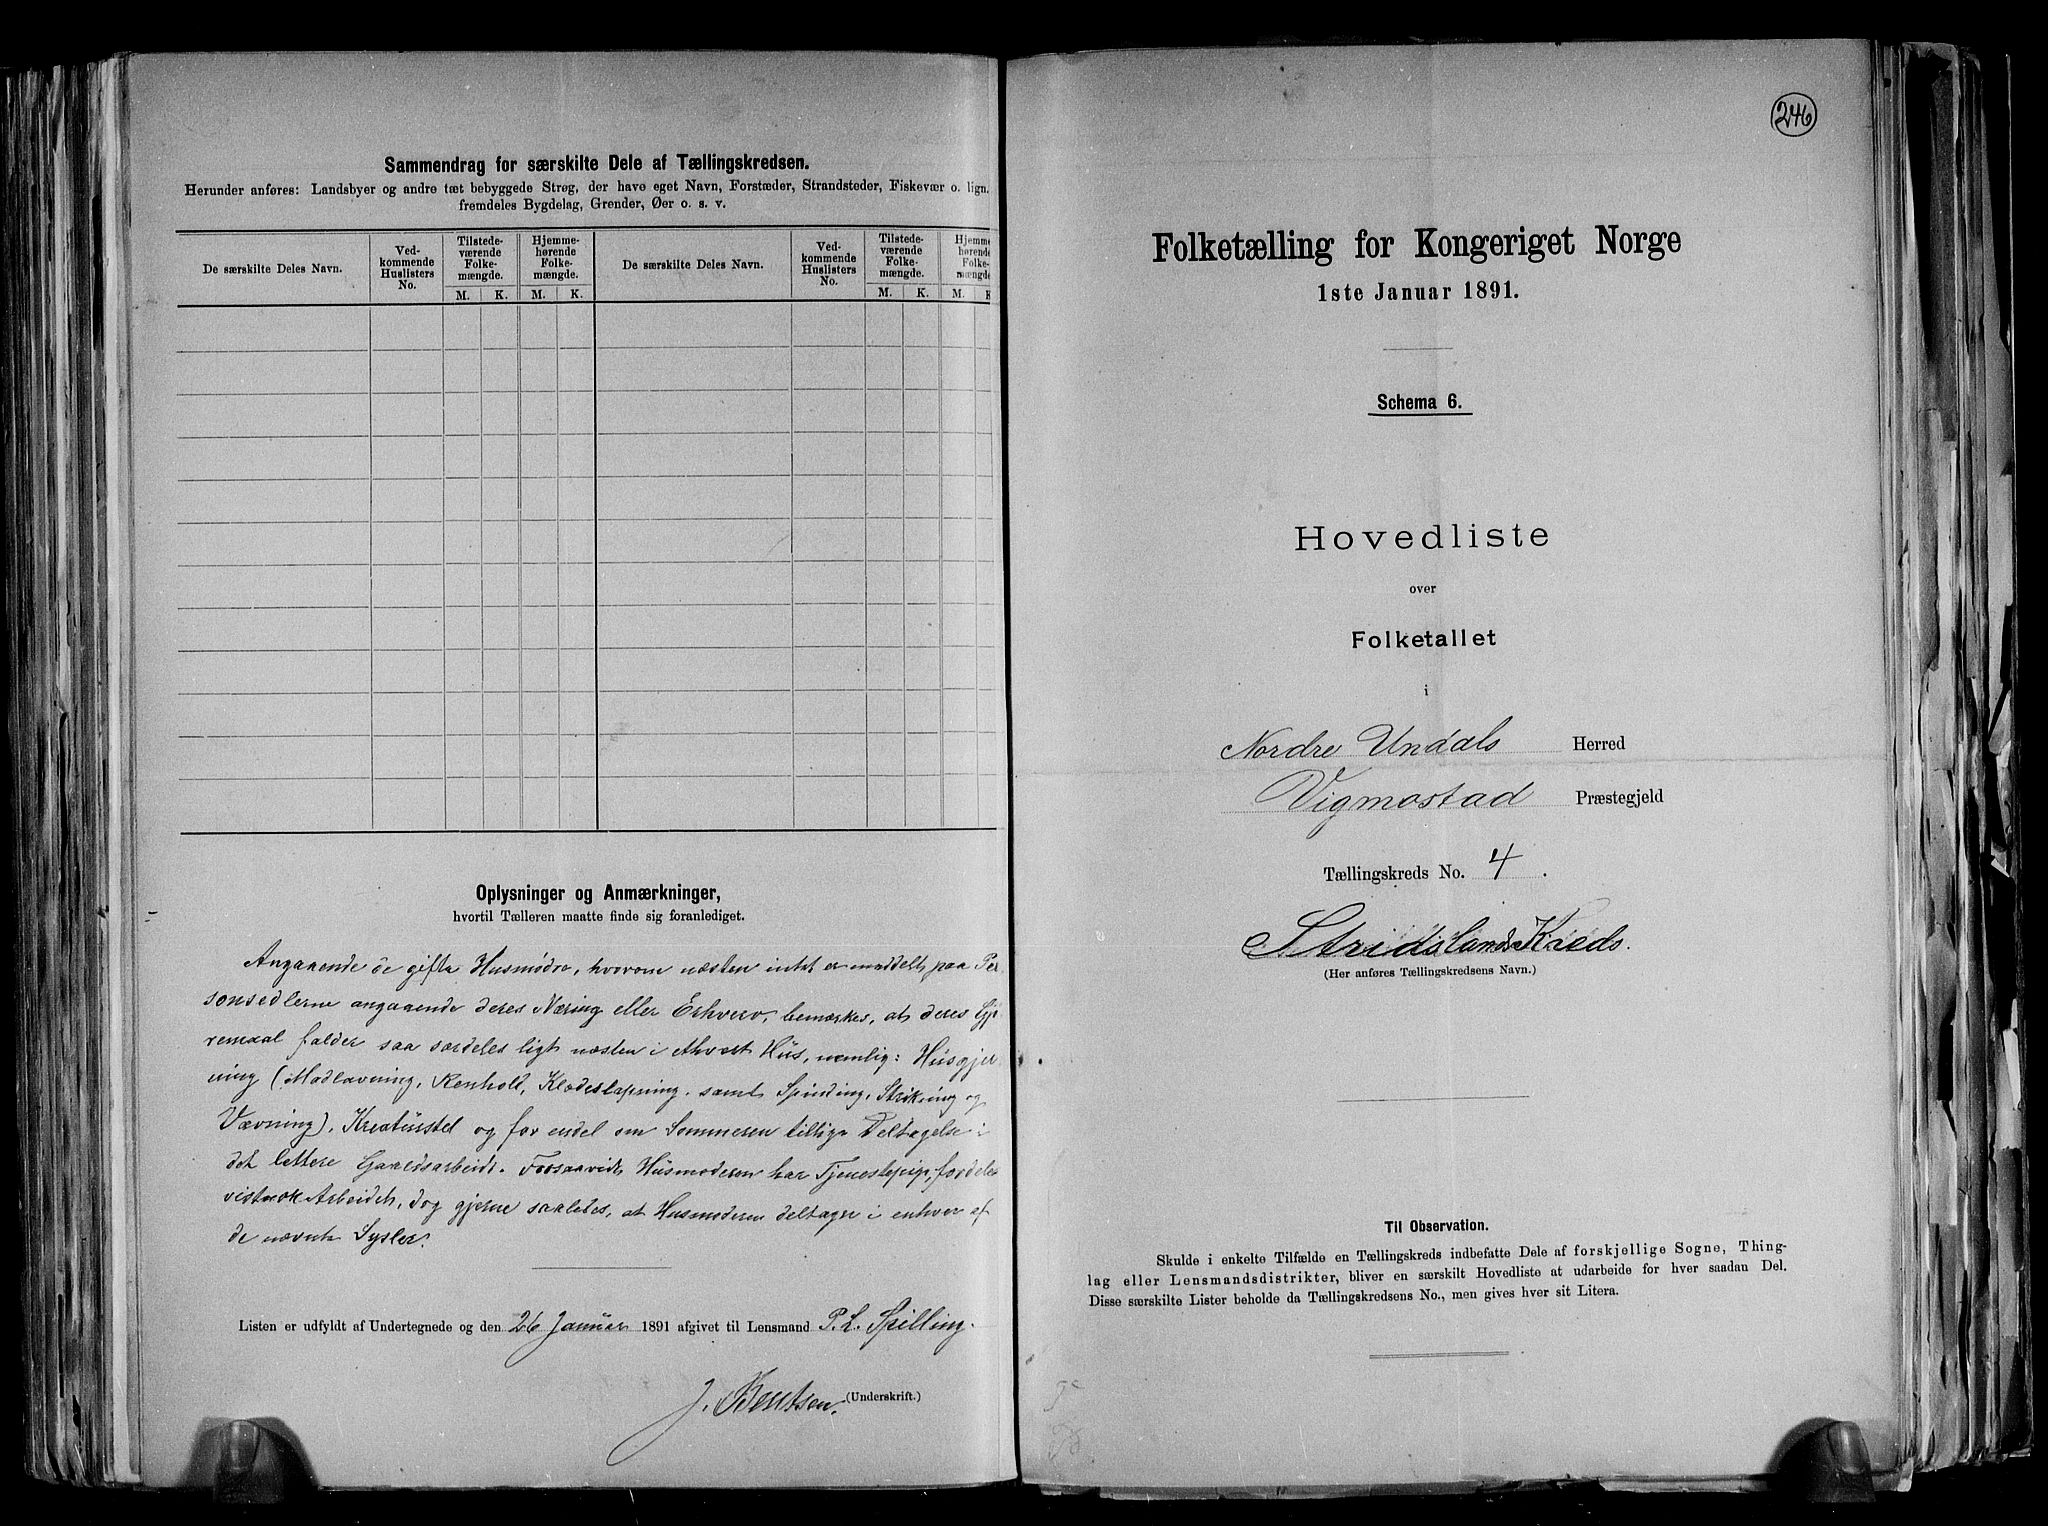 Sammendrag for særskilte Dele af Tællingskredsen.
Herunder anføres: Landsbyer og andre tæt bebyggede Strøg, der have eget Navn, Forstæder, Strandsteder, Fiskevær o. lign.
fremdeles Bygdelag, Grender, Øer o. s. v.
De særskilte Deles Navn.
Ved-
kommende
Huslisters
No.
Tilstede-
værende
Folke-
mængde.
Hjemme-
hørende
Folke-
mængde.
M. K. M. K.
De særskilte Deles Navn.
Ved-
kommende
Huslisters
No.
Tilstede-
værende
Folke-
mængde.
Hjemme-
hørende
Folke-
mængde
M. K. M. K
Oplysninger og Anmærkninger,
hvortil Tælleren maatte finde sig foranlediget.
Angaaende de gifte Husmødre, hvorom næsten intet er meddelt paa Per
sonsedlerne angaaende deres Næring eller Erhverv, bemærkes, at deres Gjø
remaal falder saa særdeles ligt næsten i ethvert Hus, nemlig: Husgjer
ning (Madlavning, Renhold, Klædeslapning, samt Spinding, Strikning og
Vævning), Kreaturstel og for endel om Sommeren tillige Deltagelse i
det lettere Gaardsarbeide. Forsaavidt Husmoderen har Tjenestepige, fordeles
vistnok Arbeidet, dog gjerne saaledes, at Husmoderen deltager i enhver af
de nævnte Sysler.
Listen er udfyldt af Undertegnede og den 26 Januar 1891 afgivet til Lensmand P. L. Spilling.
J. Bentsen.
(Underskrift.)
246
Folketælling for Kongeriget Norge
1ste Januar 1891.
Schema 6.
Hovedliste
over
Folketallet
i
Nordre Undals Herred
Vigmostad Præstegjeld
Tællingskreds No. 4.
Stridslands Kreds.
(Her anføres Tællingskredsens Navn.)
Til Observation.
Skulde i enkelte Tilfælde en Tællingskreds indbefatte Dele af forskjellige Sogne, Thing-
lag eller Lensmandsdistrikter, bliver en særskilt Hovedliste at udarbeide for hver saadan Del.
Disse særskilte Lister beholde da Tællingskredsens No., men gives hver sit Litera.